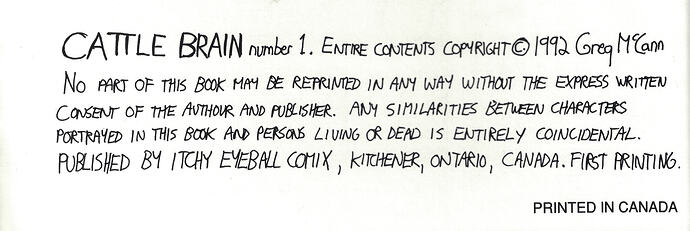 CATTLE BRAIN number 1. ENTIRE CONTENTS COPYRIGHT © 1992 Greg McCann
NO PART OF THIS BOOK MAY BE REPRINTED IN ANY WAY WITHOUT THE EXPRESS WRITTEN
CONSENT OF THE AUTHOUR AND PUBLISHER. ANY SIMILARITIES BETWEEN CHARACTERS
PORTRAYED IN THIS BOOK AND PERSONS LIVING OR DEAD IS ENTIRELY COINCIDENTAL.
PUBLISHED BY ITCHY EYEBALL COMIX, KITCHENER, ONTARIO, CANADA. FIRST PRINTING.
PRINTED IN CANADA